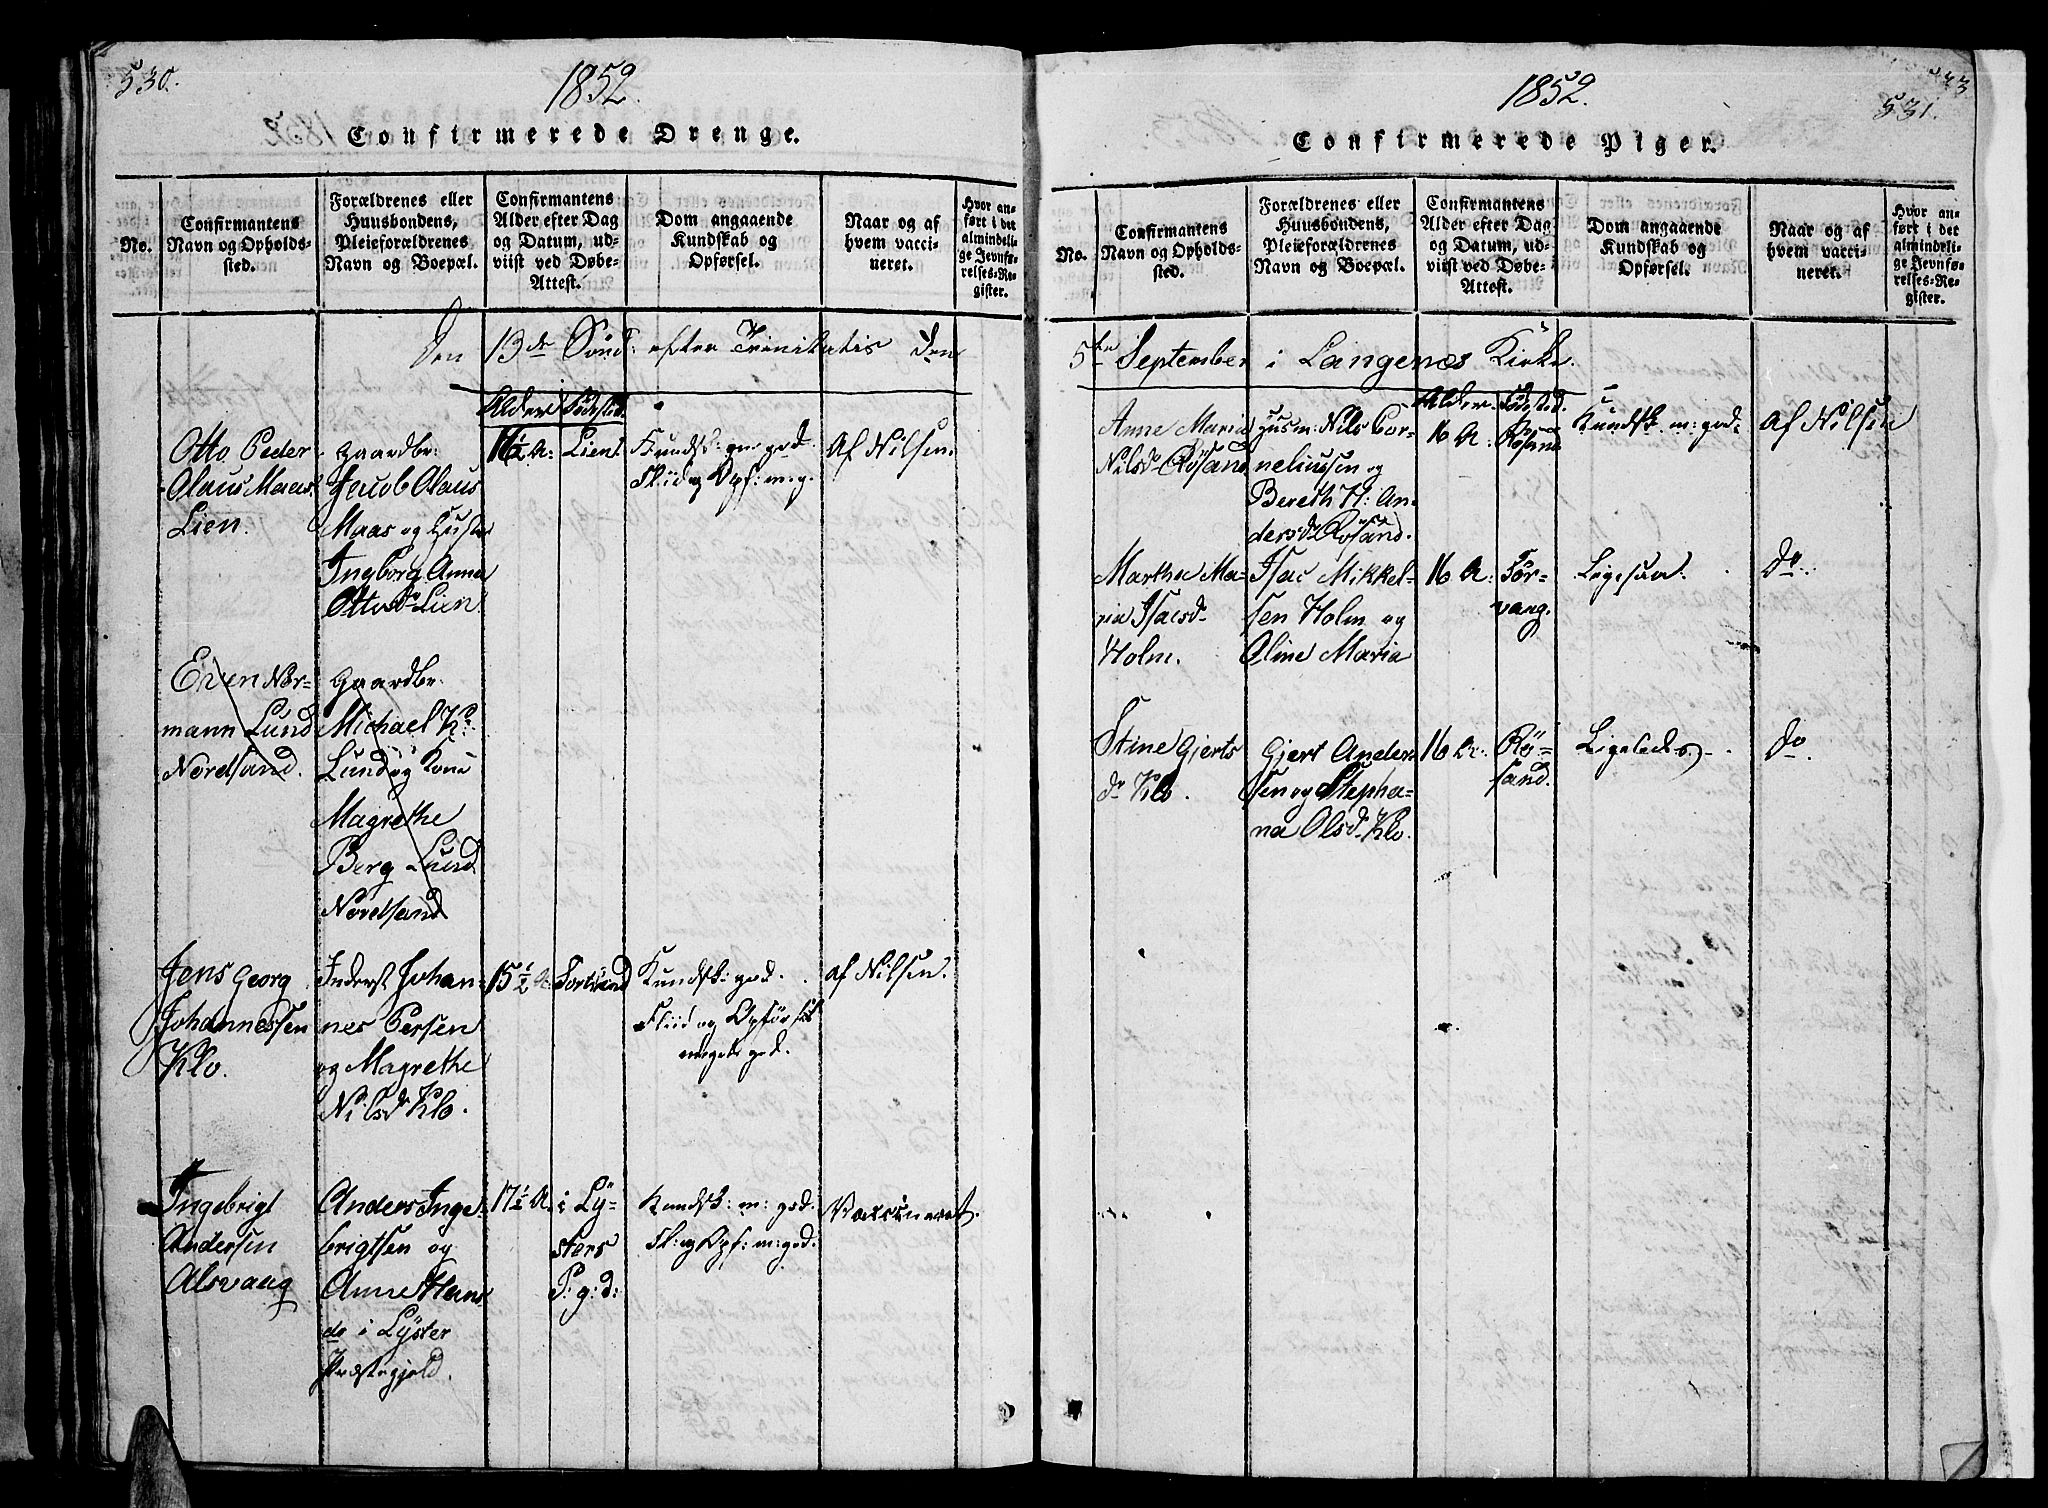 530.
1852.
Confirmerede Drenge.
No.
Confirmantens
Navn og Opholds-
sted.
Forældrenes eller
Huusbondens,
Pleieforældrenes
Navn og Boepæl.
Confirmantens
Alder efter Dag
og Datum, ud-
viist ved Døbe-
Attest.
Dom angaaende
Kundskab og
Opførsel.
Naar og af
hvem vacci-
neret.
Hvor an-
ført i det
almindeli-
ge Jevnfø-
relses-Re-
gister.
Den 13de Sönd: efter Trinitatis den
Alder Födested.
Otto Peder
Olaus Maas
Lien.
Gaardbr:
Jacob Olaus
Maas og Hustr
Ingborg Anna
Ottosdr Lien
16½ A:
Lien
Kundsk: m: god.
Fliid og Opf: m: g.
Af Nilsen.
Even Nor-
mann Lund
Nordsand.
Gaardbr.
Michael K:
Lund og Kone
Magrethe
Berg Lund
Nordsand
Jens Georg
Johannessen
Klo.
Inderst Johan-
nes Persen
og Magrethe
Nilsdr Klo.
15½ A:
Sortland
Kundsk: god.
Fliid og Opförsel
meget god.
Af Nilsen.
Ingebrigt
Andersen
Alsvaag
Anders Inge-
brigtsen og
Anne Hans
dr i Lÿster
Præstegjeld.
17½ A.
i Lÿ-
sters
P: g: d:
Kundsk: m: god.
Fl: og Opf: m: god.
Vaccineret.
1852.
33
531.
Confirmerede Piger.
No.
Confirmantens
Navn og Opholds-
sted.
Forældrenes eller
Huusbondens,
Pleieforældrenes
Navn og Boepæl.
Confirmantens
Alder efter Dag
og Datum, ud-
viist ved Døbe-
Attest.
Dom angaaende
Kundskab og
Opførsel.
Naar og af
hvem vacci-
neret.
Hvor an-
ført i det
almindeli-
ge Jevnfø-
relses-Re-
gister.
5te September i Langenæs Kirke.
Alder. Födested.
Anne Maria
Nilsdr Rösand
Husm: Nils Cor-
neliussen og
Bereth H: An-
dersdr Rösand.
16 A:
Rösand
Kundsk. m: god:
Af Nilsen
Marthe Ma-
ria Isacsdr
Holm.
Isac Mikkel-
sen Holm og
Oline Maria
16 A:
Tör-
vang.
Ligesaa.
Do.
Stine Gjerts
dr Klo.
Gjert Ander-
sen og Stepha-
na Olsdr Klo.
16 A:
Rö-
sand.
Ligeleds.
Do.